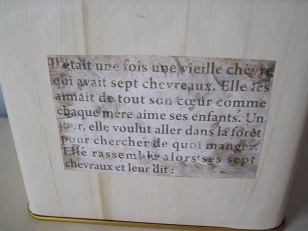 Il était une fois une vieille chèvre
qui avait sept chevreaux. Elle les
aimait de tout son cœur comme
chaque mère aime ses enfants. Un
jour, elle voulut aller dans la forêt
pour chercher de quoi manger.
Elle rassembla alors ses sept
chevraux et leur dit :